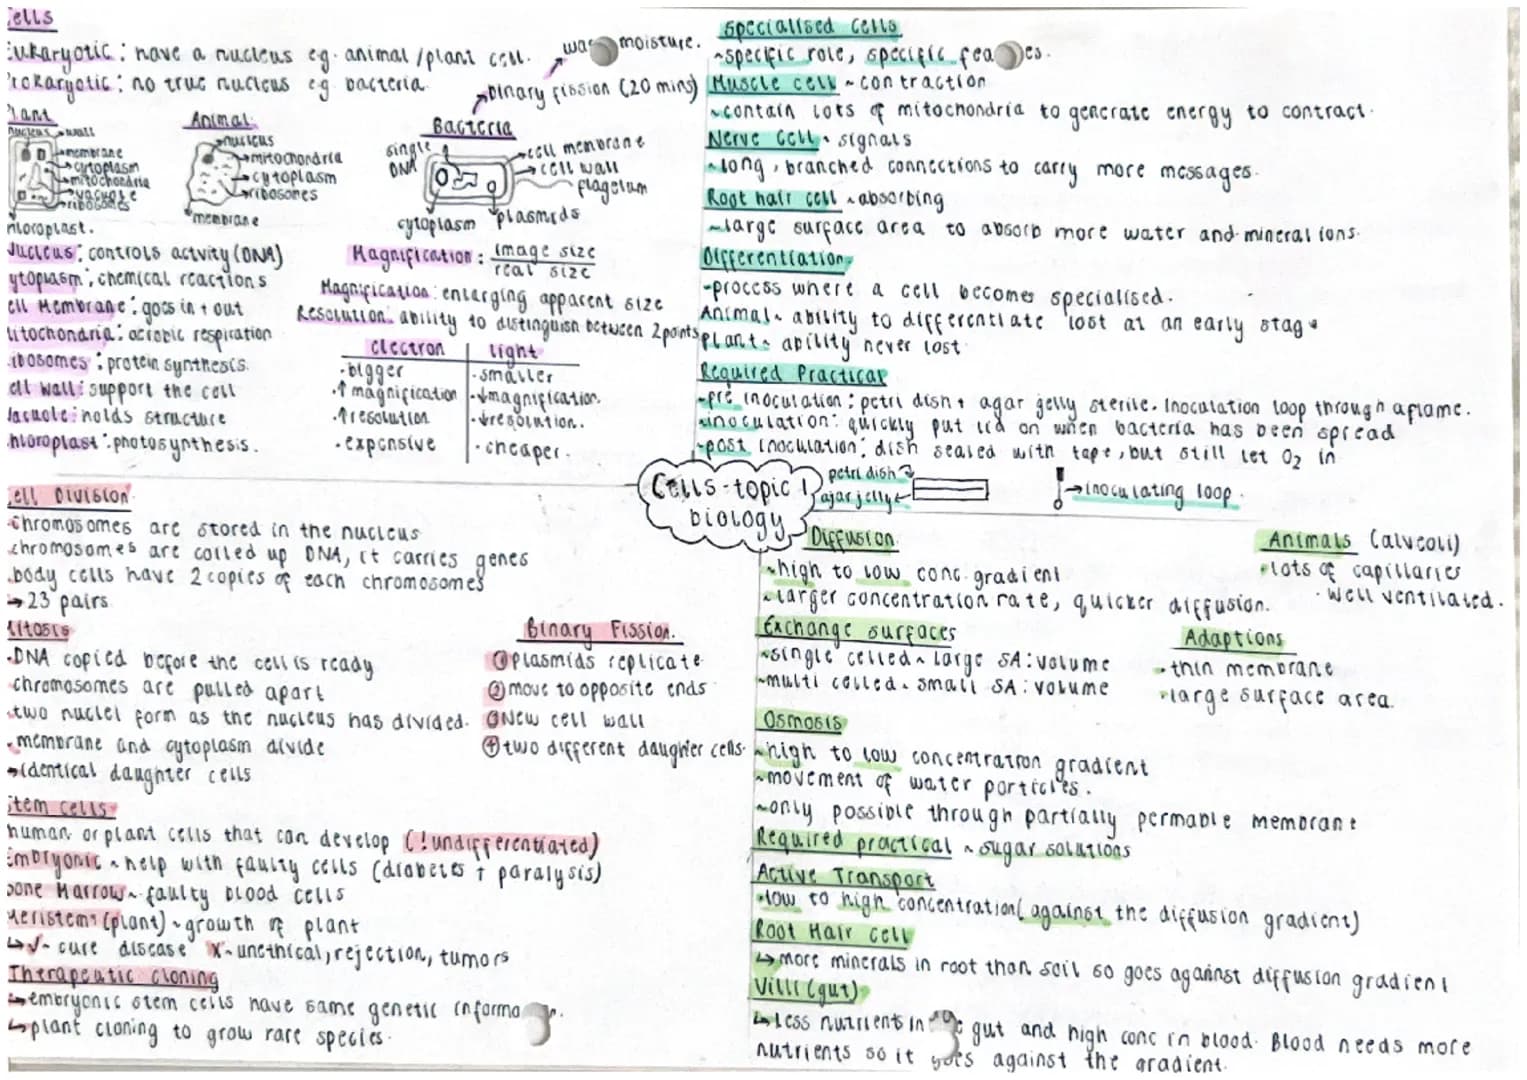 Cells
Eukaryotic: have a nucleus e.g. animal/plant cell.
Prokaryotic: no true nucleus e.g. bacteria.
binary fission (20 mins)
moisture.
Plant
nucleus
wall
membrane
cytoplasm
mitochondria
vacuole
ribosomes
chloroplast.
Animal
nucleus
mitochondria
cytoplasm
ribosomes
membrane
Bacteria
single DNA
cell membrane
cell wall
flagelum
cytoplasm
plasmids
Nucleus: controls activity (DNA)
cytoplasm: chemical reactions
cell Membrane: goes in + out
Mitochondria: aerobic respiration
ribosomes: protein synthesis.
cell wall: support the cell
Vacuole: holds structure
chloroplast: photosynthesis.
Magnification: image size
real size
Magnification: enlarging apparent size
Resolution: ability to distinguish between 2 points
electron | light
·bigger ·smaller
·↑magnification ·↓magnification.
·↑resolution ·↓resolution.
·expensive ·cheaper.
Specialised Cells
~specific role, specific
Muscle cell ~ contraction
~contain lots of mitochondria to generate energy to contract.
Nerve cell ~ signals
~long, branched connections to carry more messages.
Root hair cell ~ absorbing
~large surface area to absorb more water and mineral ions.
Differentiation
-process where a cell becomes specialised.
Animal ~ ability to differentiate lost at an early stage
Plant ~ ability never lost
Required Practical
-pre inoculation: petri dish + agar jelly sterile. Inoculation loop through a flame.
-inoculation: quickly put lid on when bacteria has been spread
-post inoculation: dish sealed with tape, but still let O2 in
petri dish
agar jelly
→inoculating loop.
Cells - topic 1
biology
Cell Division
·chromosomes are stored in the nucleus
·chromosomes are coiled up DNA, it carries genes
·body cells have 2 copies of each chromosomes
→23 pairs
Mitosis
·DNA copied before the cell is ready
·chromosomes are pulled apart
·two nuclei form as the nucleus has divided.
·membrane and cytoplasm divide
→identical daughter cells
Binary Fission.
①plasmids replicate
②move to opposite ends
③New cell wall
④two different daughter cells.
Stem cells
human or plant cells that can develop (!undifferentiated)
Embryonic ~ help with faulty cells (diabetes + paralysis)
bone Marrow ~ faulty blood cells
Meristems (plant) ~ growth of plant
↳✓~ cure disease X~ unethical, rejection, tumors
Therapeutic cloning
↳embryonic stem cells have same genetic
↳plant cloning to grow rare species.
Diffusion
~high to low conc. gradient
~larger concentration rate, quicker diffusion.
Animals (alveoli)
·lots of capillaries
·well ventilated.
Exchange surfaces
~single celled ~ large SA:volume
~multi celled ~ small SA:volume
Adaptions
·thin membrane
·large surface area.
Osmosis
~high to low concentration gradient
~movement of water particles.
~only possible through partially permable membrane
Required practical ~ sugar solutions
Active Transport
·low to high concentration (against the diffusion gradient)
Root Hair cell
↳more minerals in root than soil so goes against diffusion gradient
Villi (gut)
↳Less nutrient in gut and high conc in blood. Blood needs more
nutrients so it goes against the gradient.